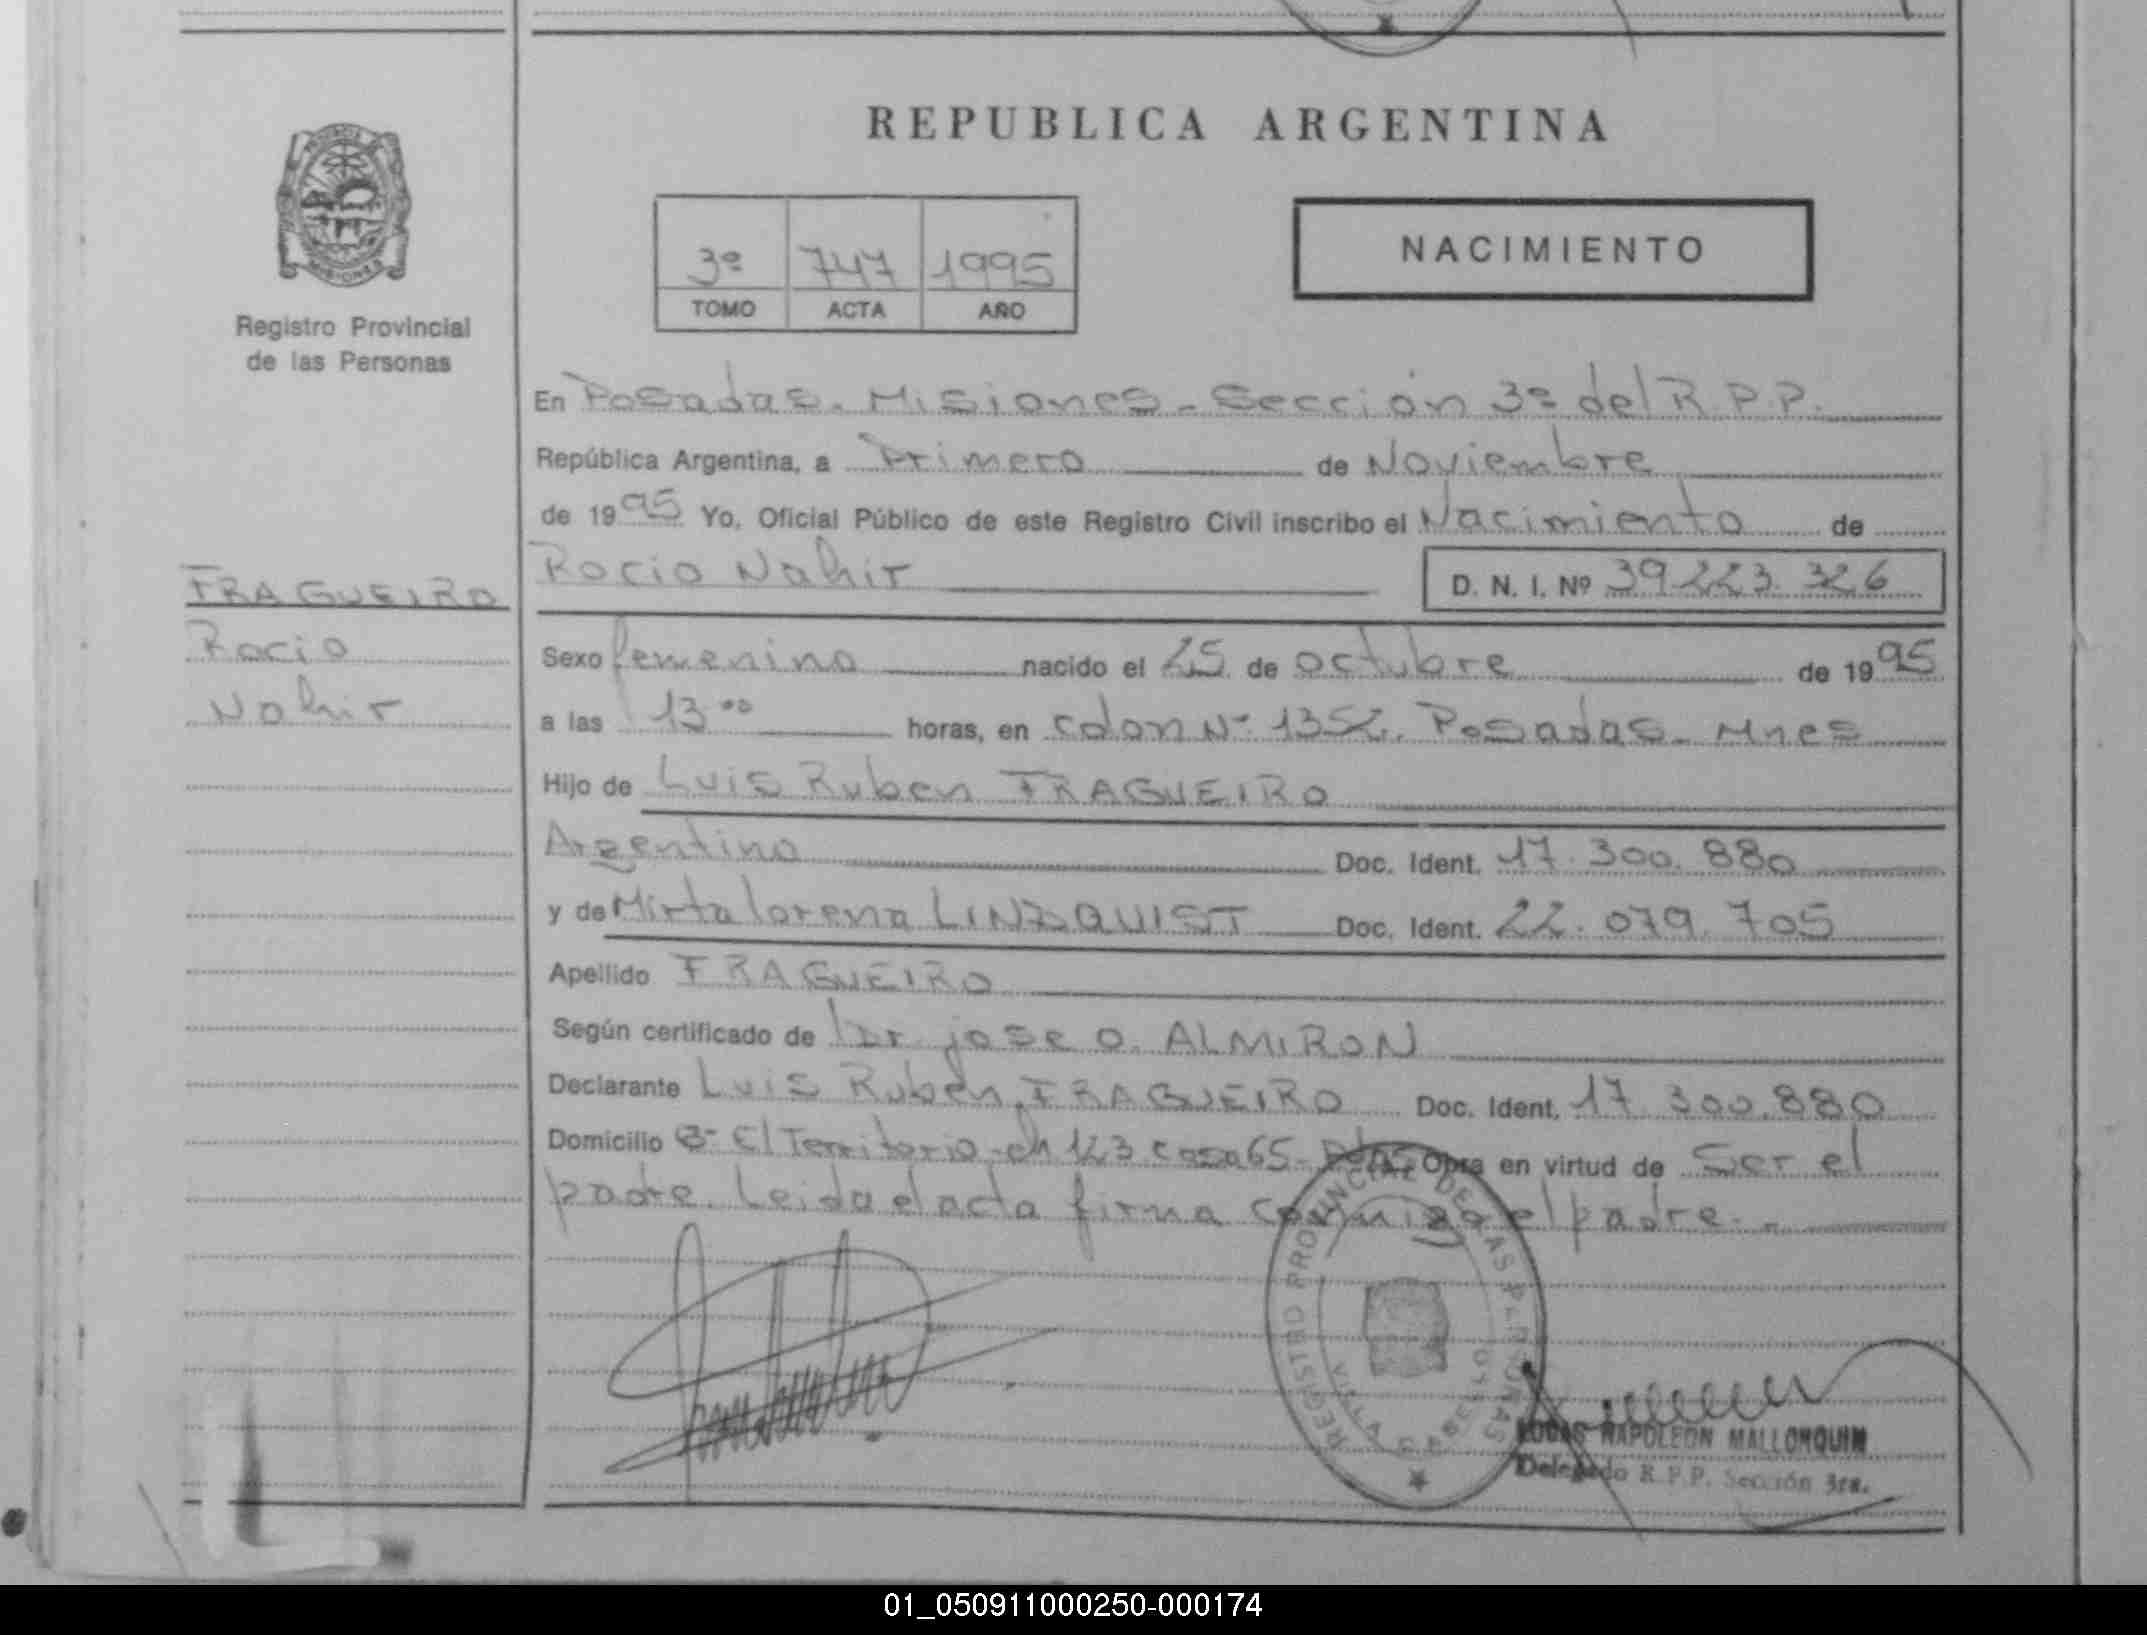 REPUBLICA ARGENTINA
NACIMIENTO
3º 747 1995
TOMO ACTA AÑO
PROVINCIA
MISIONES
Registro Provincial
de las Personas
En Posadas. Misiones - Sección 3º del R.P.P.
República Argentina, a Primero de Noviembre
de 1995 Yo, Oficial Público de este Registro Civil inscribo el Nacimiento de
Rocio Nahir D. N. I. Nº 39.223.326
FRAGUEIRO
Rocio
Nahir
Sexo femenino nacido el 25 de octubre de 1995
a las 13⁰⁰ horas, en colon Nº 1352. Posadas - Mnes
Hijo de Luis Ruben FRAGUEIRO
Argentino Doc. Ident. 17.300.880
y de Mirta lorena LINDQUIST Doc. Ident. 22.079.705
Apellido FRAGUEIRO
Según certificado de Dr. jose O. ALMIRON
Declarante Luis Ruben FRAGUEIRO Doc. Ident. 17.300.880
Domicilio Bº El Territorio - ch 123 casa 65 - Pdas Obra en virtud de Ser el
padre. Leida el acta firma conmigo el padre. -
REGISTRO PROVINCIAL DE LAS PERSONAS
VILLA
LUCAS NAPOLEON MALLORQUIN
Delegado R.P.P. Sección 3ra.
01_050911000250-000174